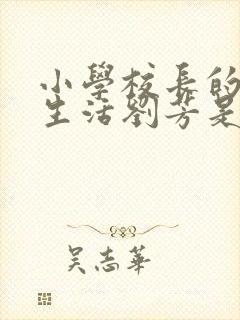 小學校長的
生活劉芳是
吳志華